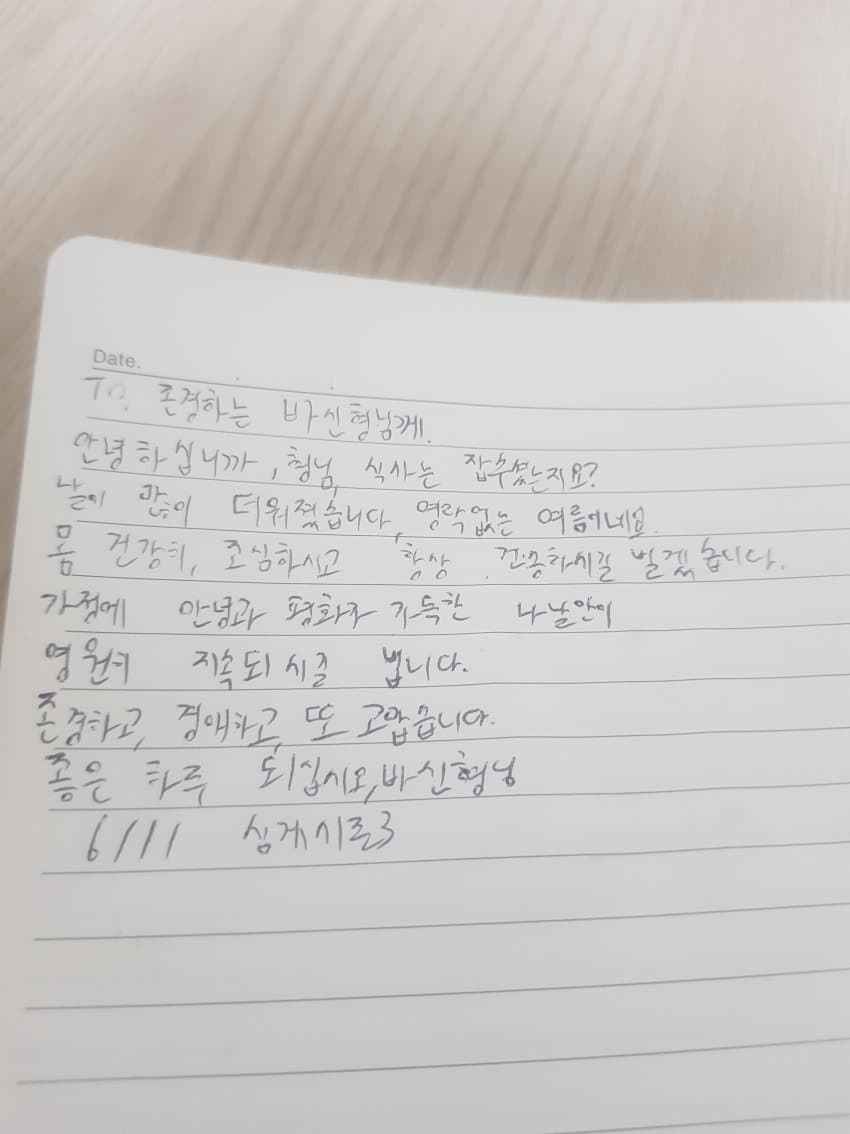 Date.
To. 존경하는 바신형님께.
안녕하십니까, 형님, 식사는 잡수셨는지요?
날이 많이 더워졌습니다, 영락없는 여름이네요.
몸 건강히, 조심하시고 항상 건승하시길 빌겠습니다.
가정에 안녕과 평화가 가득한 나날만이
영원히 지속되시길 빕니다.
존경하고, 경애하고, 또 고맙습니다.
좋은 하루 되십시오, 바신형님
6/11